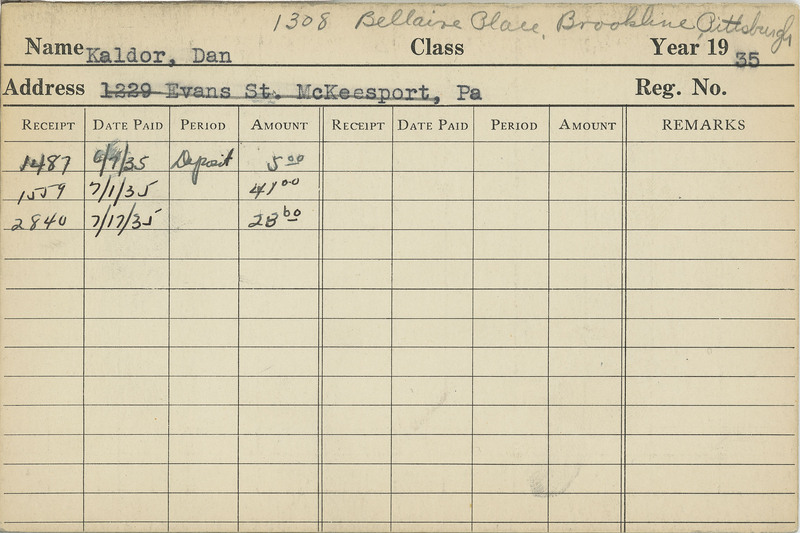 1308 Bellaire Place, Brookline, Pittsburgh
Name Kaldor, Dan Class Year 19 35
Address 1229 Evans St. McKeesport, Pa Reg. No.
RECEIPT DATE PAID PERIOD AMOUNT RECEIPT DATE PAID PERIOD AMOUNT REMARKS
1487 6/7/35 Deposit 5 00
1559 7/1/35 41 00
2840 7/17/35 28 60